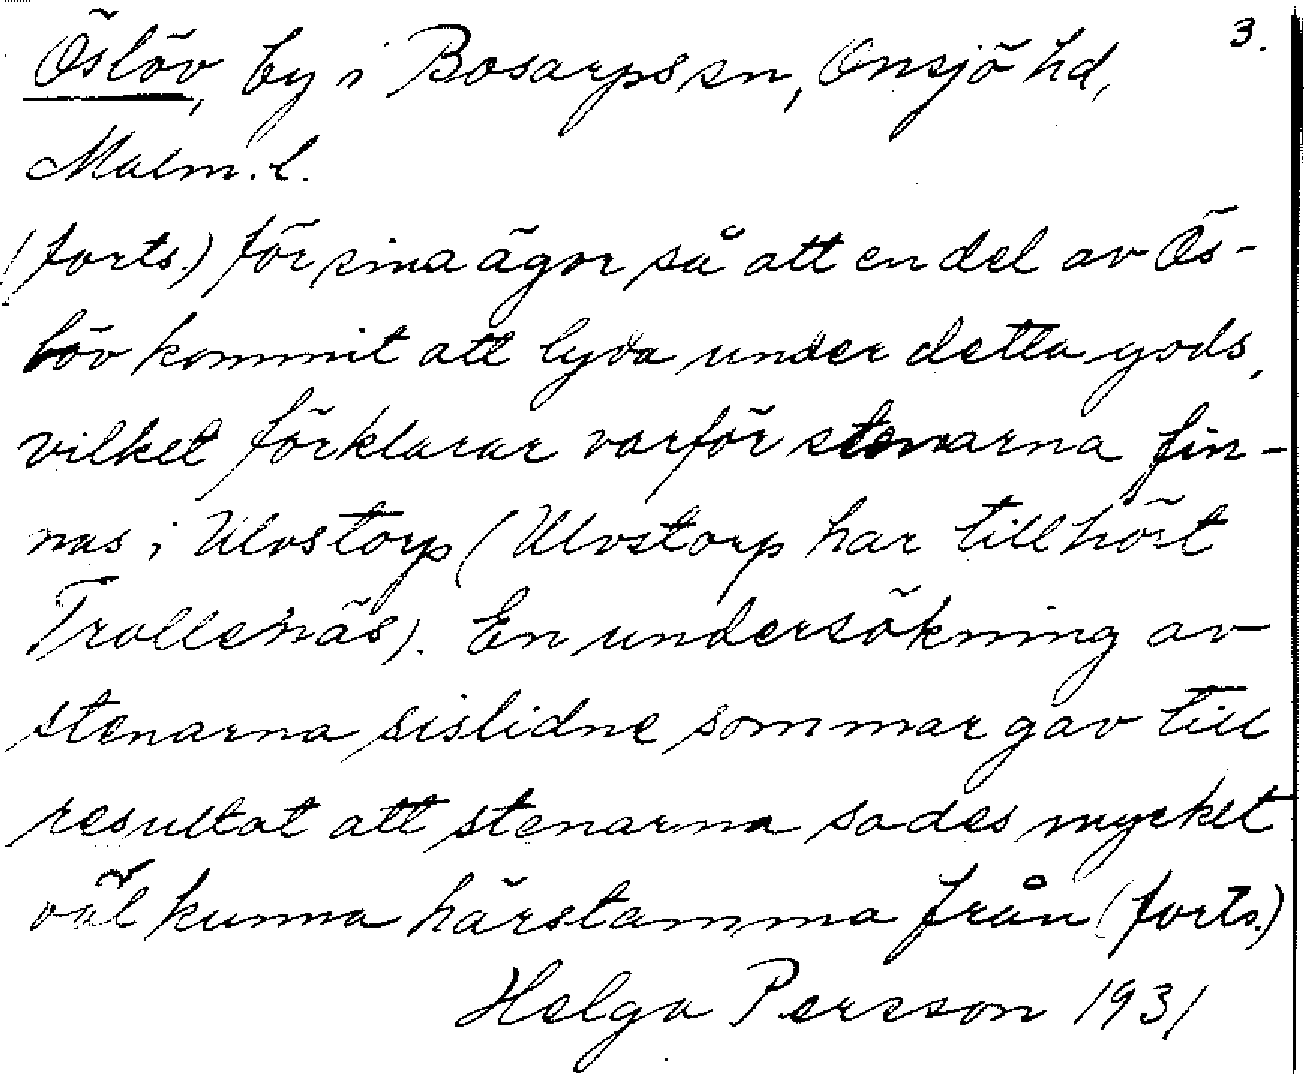 3.
Öslöv, by i Bosarps sn, Onsjö hd,
Malm. l.
(forts.) för sina ägor så att en del av Ös-
löv kommit att lyda under detta gods,
vilket förklarar varför stenarna fin-
nas i Ulvstorp (Ulvstorp har tillhört
Trollenäs). En undersökning av
stenarna sislidne sommar gav till
resultat att stenarna sades mycket
väl kunna härstamma från (forts.)
Helga Persson 1931